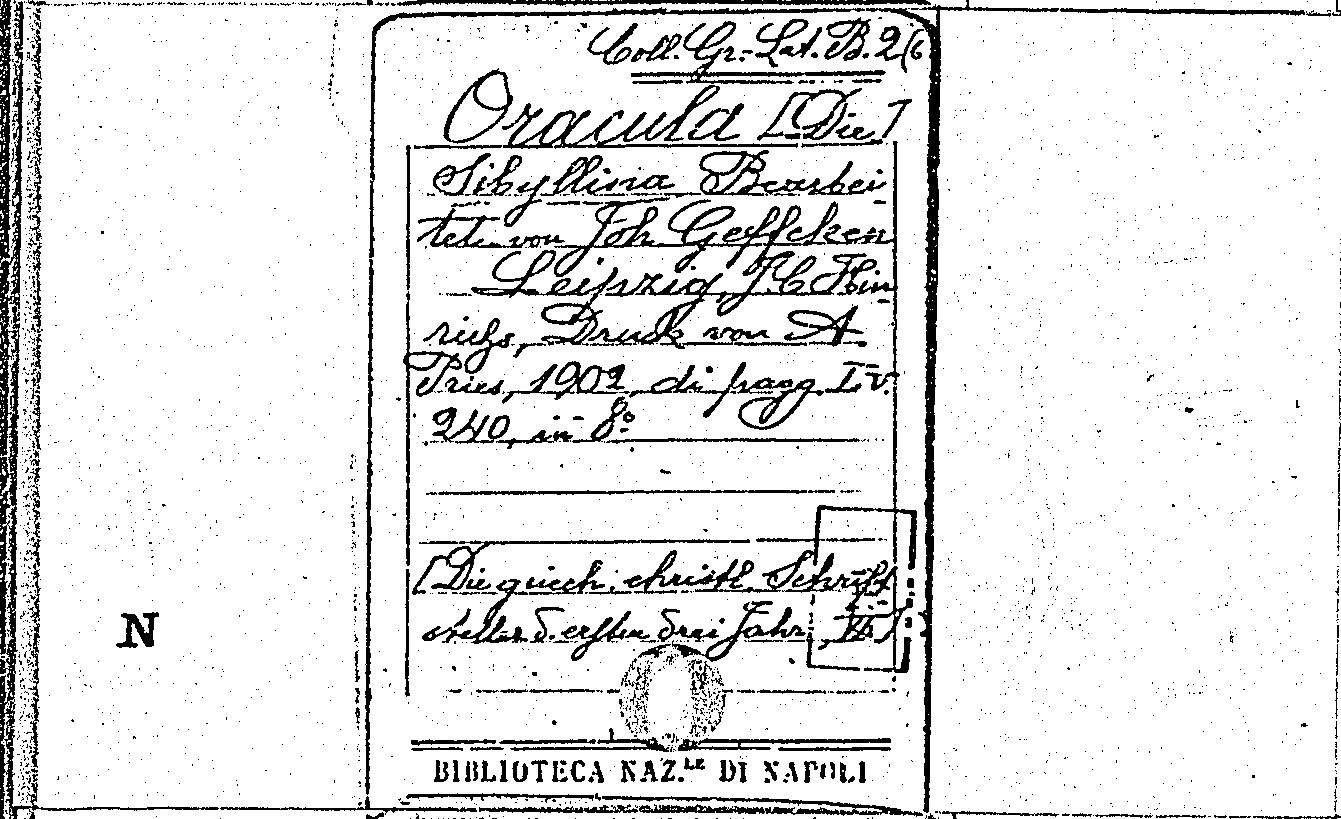 Coll. Gr.-Lat. B. 2(6
Oracula [Die]
Sibyllina Bearbei
tet von Joh Geffcken
Leipzig, J C Hin
richs, Druck von A
Pries, 1902, di pagg. LV.
240, in 8º
[Die griech. christl. Schrift
steller d. ersten drei Jahr.,
N
BIBLIOTECA NAZ.LE DI NAPOLI